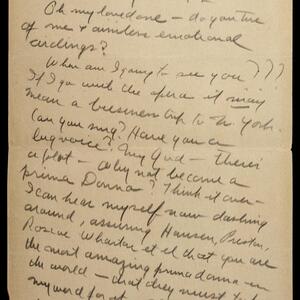 Oh my loved one – do you tire
of me & aimless emotional
ardings?
When am I going to see you???
If I go with the opera it may
mean a business trip to N. York.
Can you sing? Have you a
big voice? My God – there's
a plot – Why not become a
prima Donna? Think it over –
I can hear myself now dashing
around, assuring Hansen, Preston,
Roscoe Wharton et el that you are
the most amazing prima donna in
the world – that they must take
my word for it